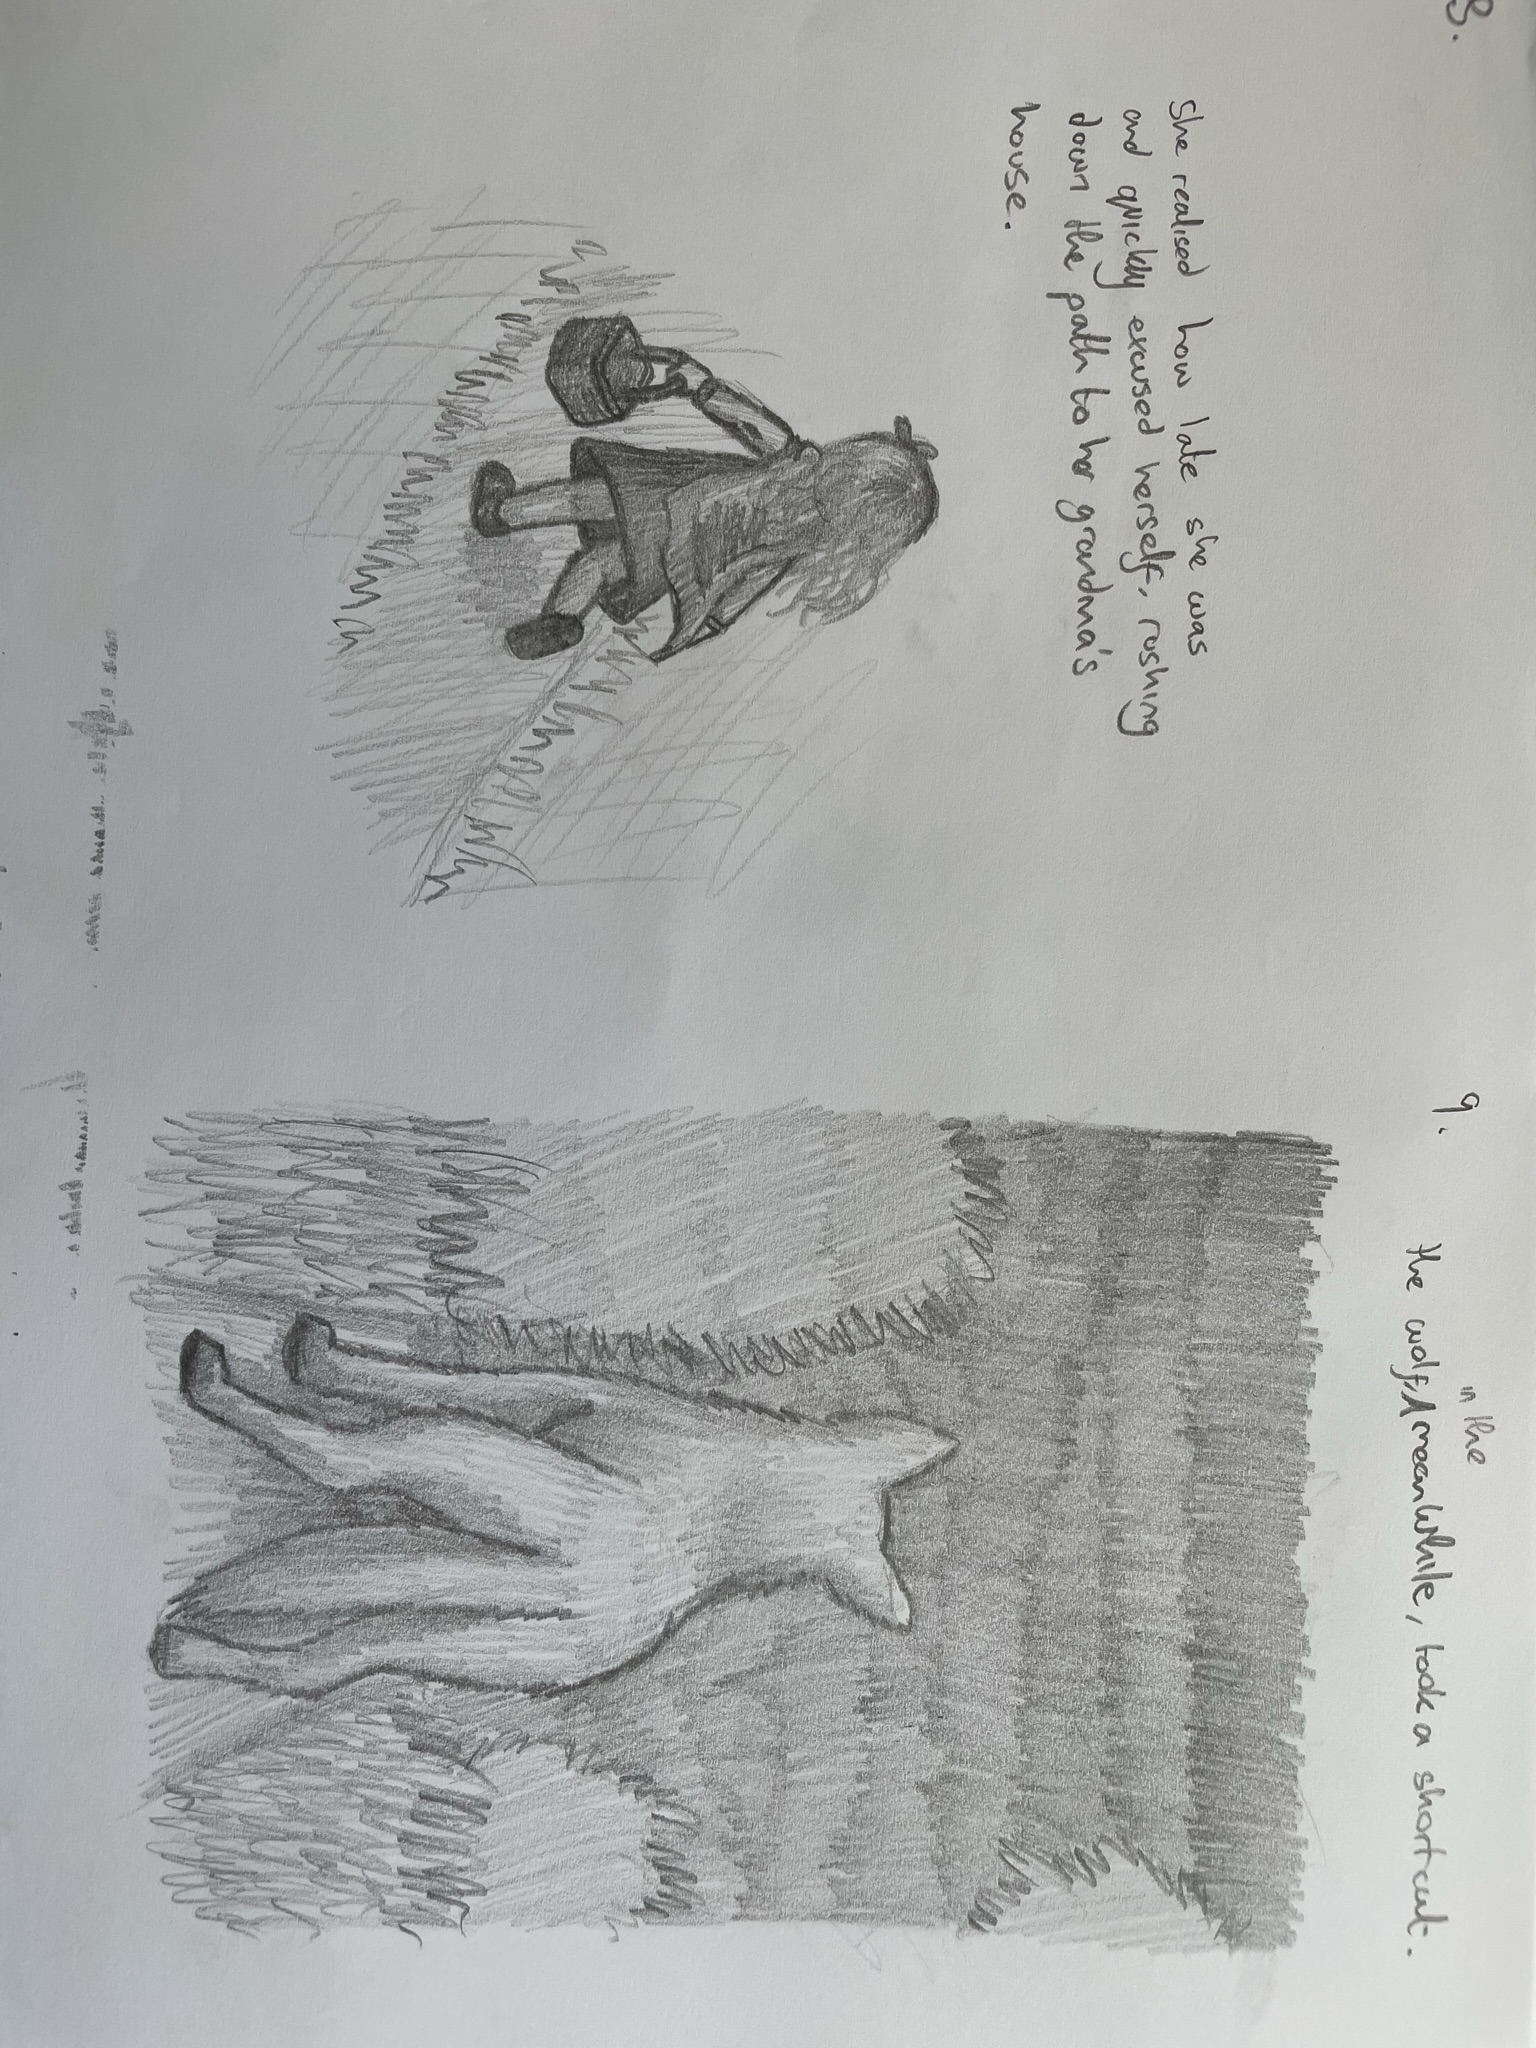 8.
She realised how late she was
and quickly excused herself, rushing
down the path to her grandma's
house.
9.
in the
the wolf, meanwhile, took a shortcut.